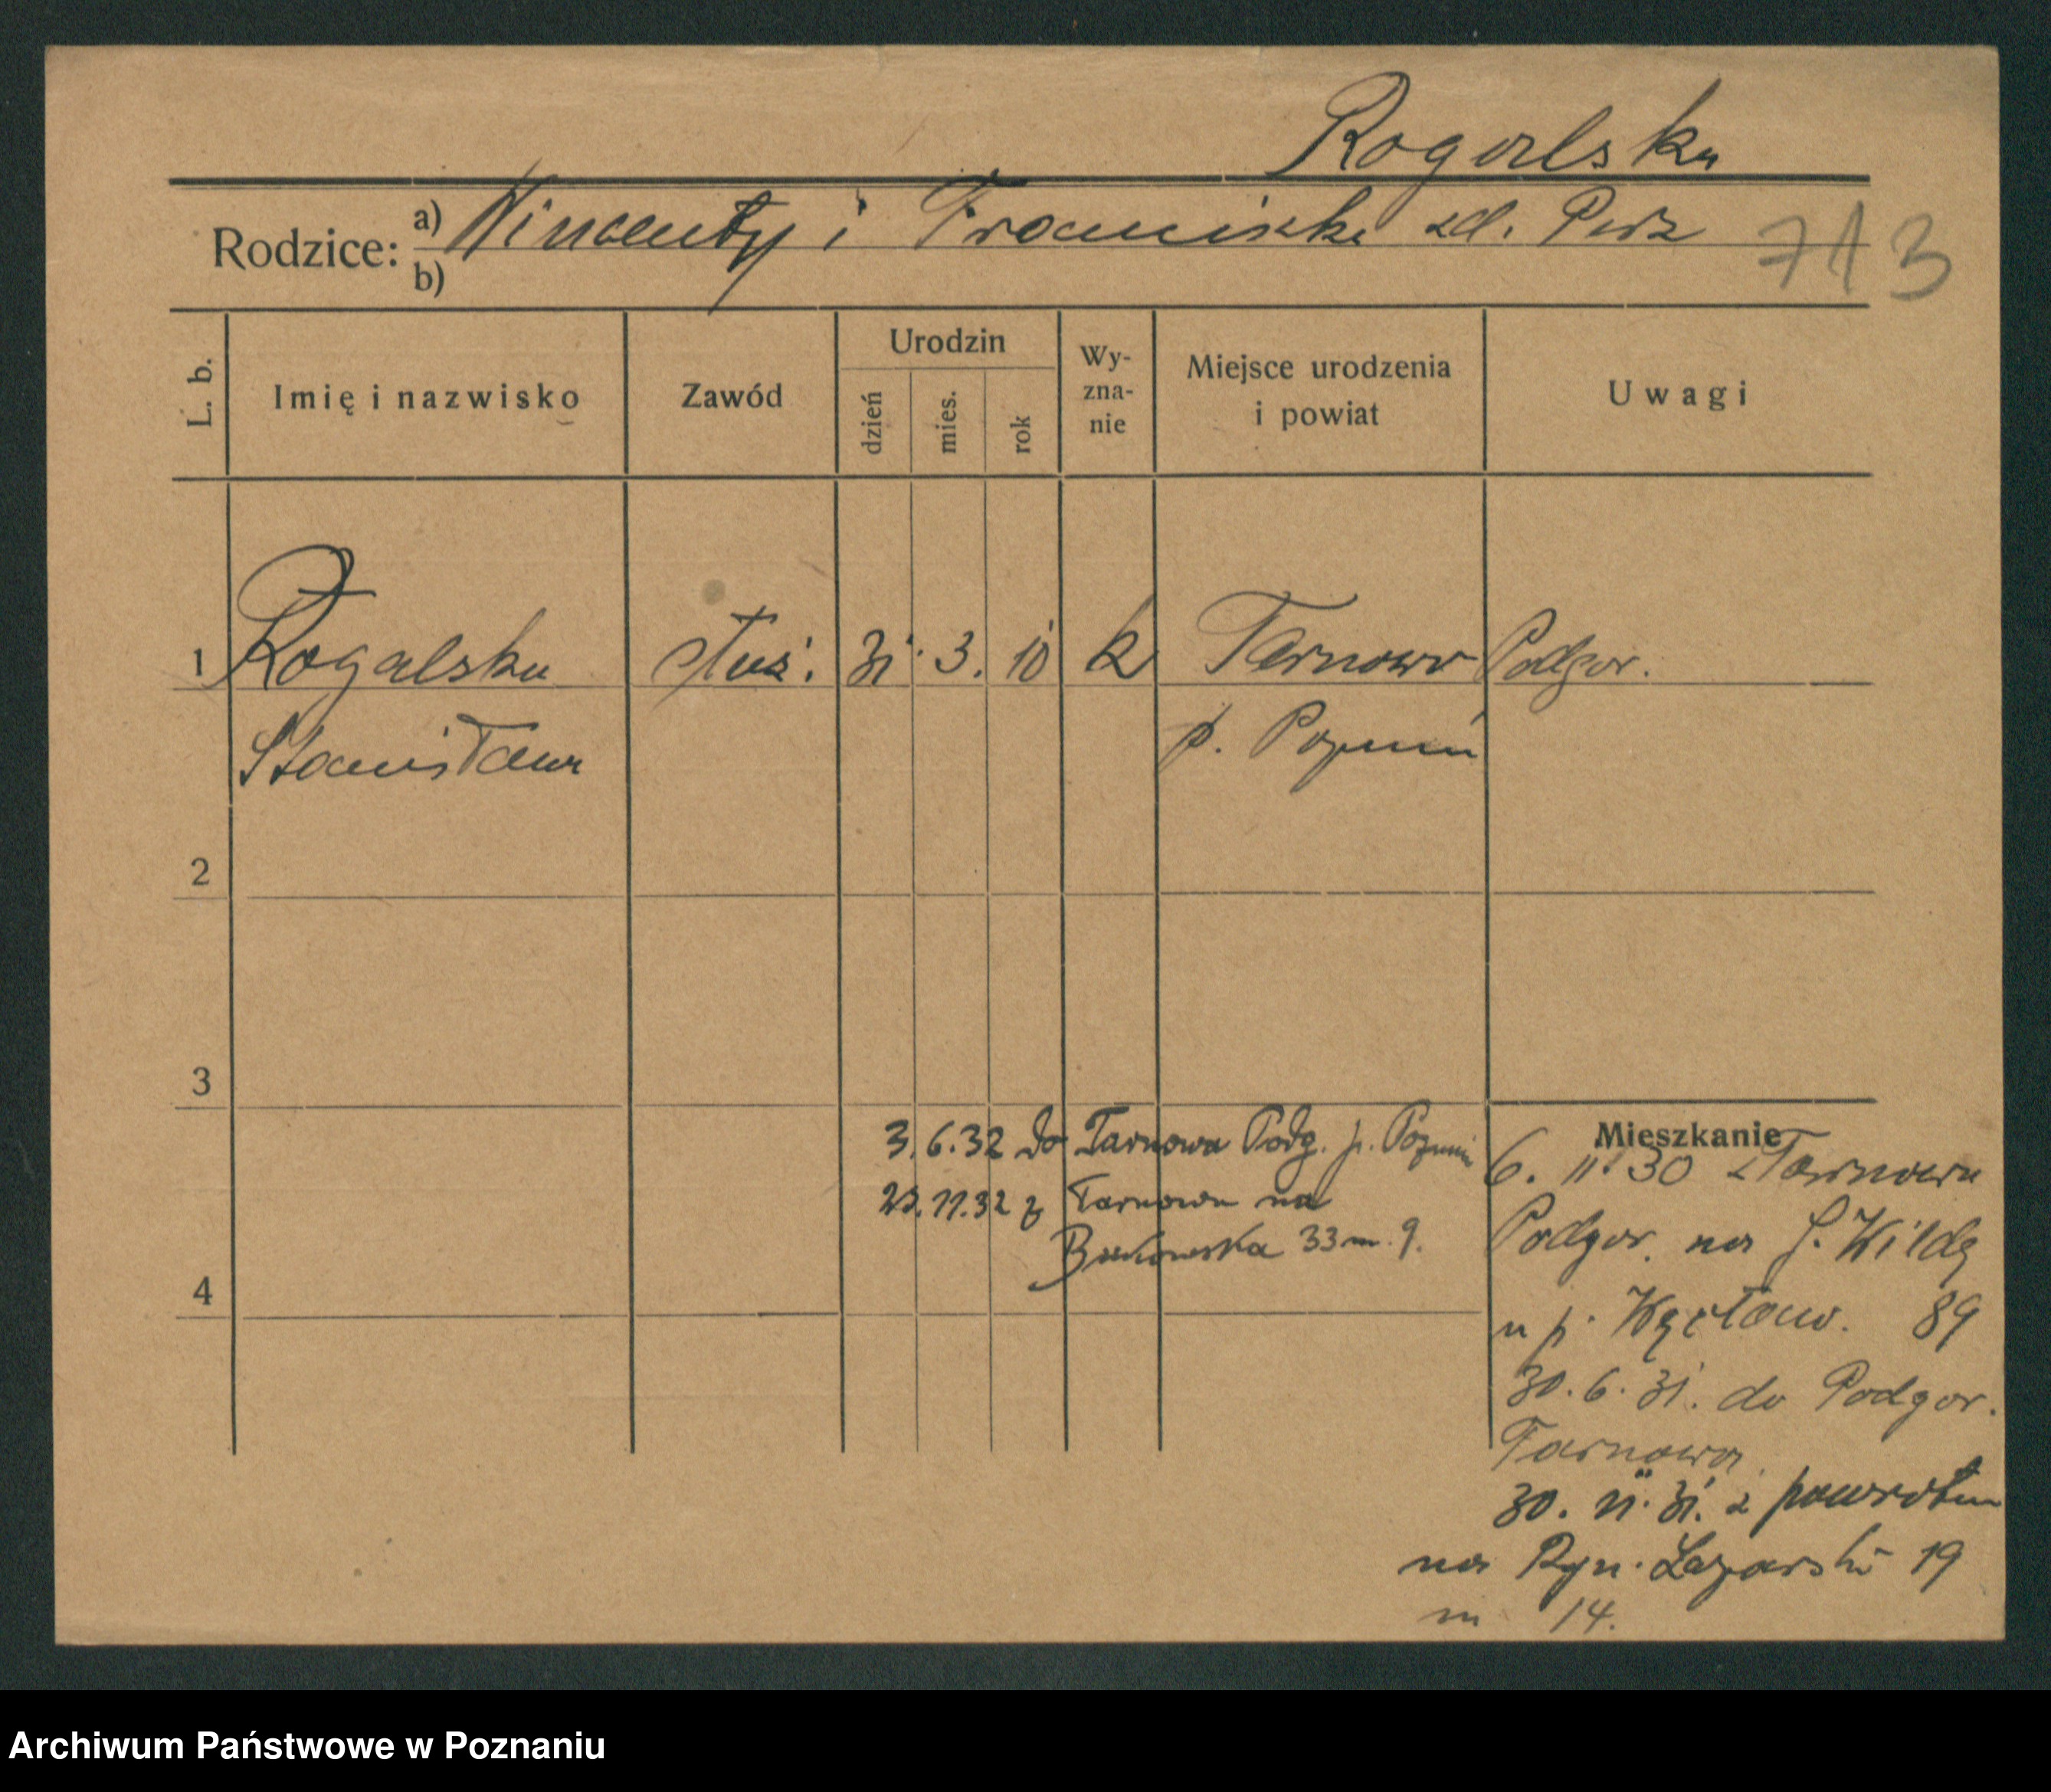 Rogalska
Rodzice: a) Wincenty i Franciszka zd. Perz
b)
713
L. b. Imię i nazwisko Zawód Urodzin dzień mies. rok Wy-zna-nie Miejsce urodzenia i powiat Uwagi
1 Rogalska służ. 31. 3. 10 k Tarnowo Podgor.
Stanisława p. Poznań
2
3
Mieszkanie
3.6.32 do Tarnowa Podg. p. Poznań
.11.32 z Tarnowa na
Bukowska 33 m. 9.
4
6. 11. 30 z Tarnowa
Podgor. na G. Wildę
u p. 89
30. 6. 31. do Podgor.
Tarnowa
30. 11. 31. z powrotem
na Ryn. Łazarski 19
m 14.
Archiwum Państwowe w Poznaniu